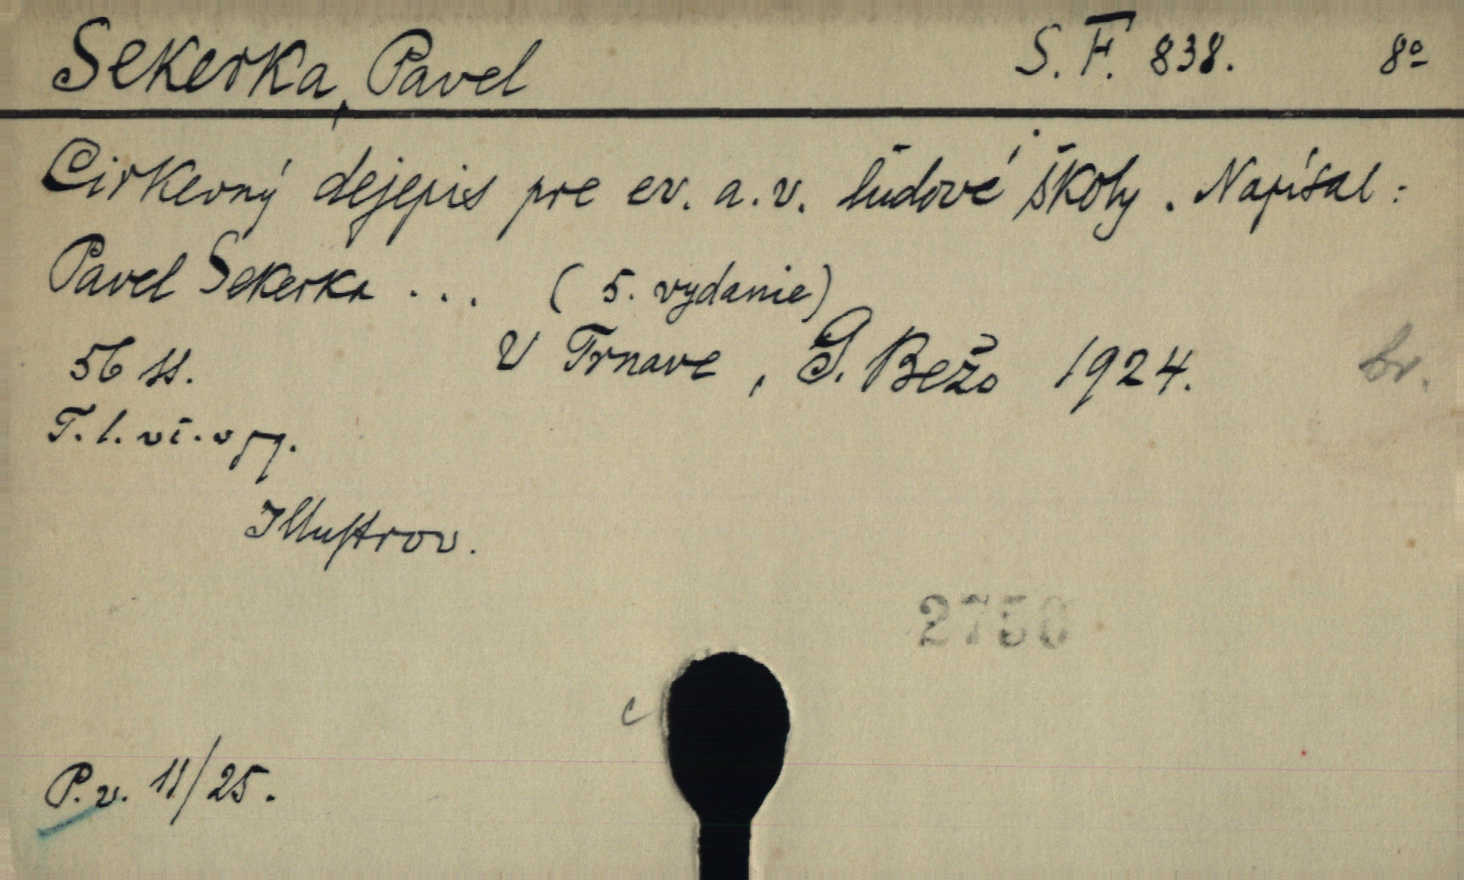 Sekerka, Pavel S. F. 838. 8º
Cirkevný dejepis pre ev. a. v. ľudové školy. Napísal:
Pavel Sekerka ... (5. vydanie)
56 ss. V Trnave, G. Bežo 1924. br.
T. l. vi. v
Illustrov.
2750
c
P. v. 11/25.